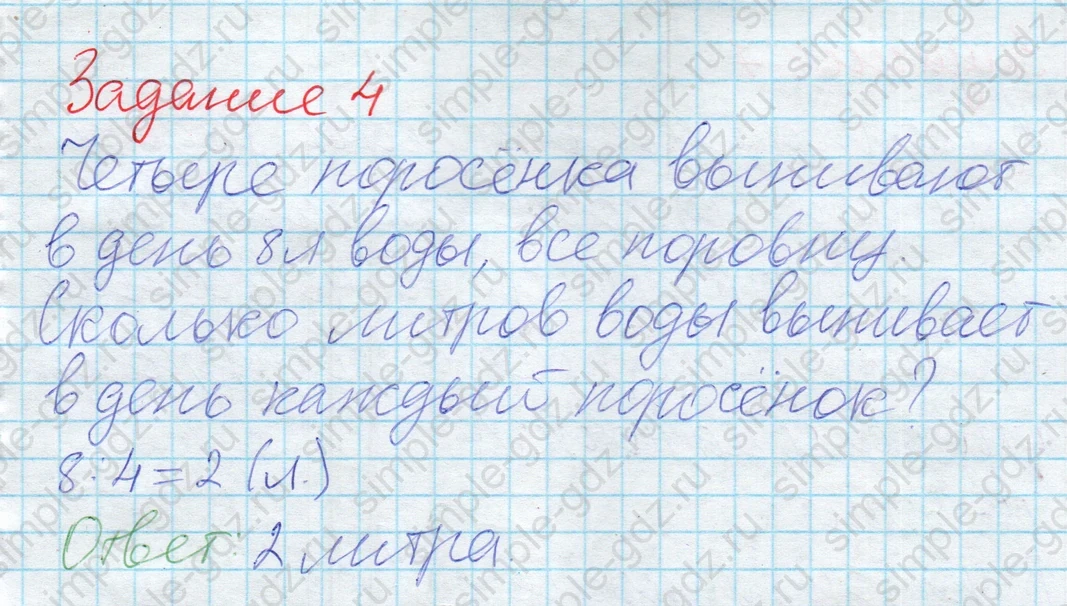 Задание 4
Четыре поросёнка выпивают
в день 8л воды, все поровну.
Сколько литров воды выпивает
в день каждый поросёнок?
8:4=2 (л.)
Ответ: 2 литра.
simple-gdz.ru